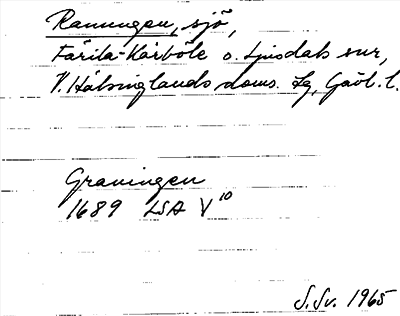 Ranningen, sjö,
Färila-Kårböle o. Ljusdals snr,
V. Hälsinglands doms. lg, Gävl. l.
Graningen
1689 LSA V¹⁰
S. Sv. 1965